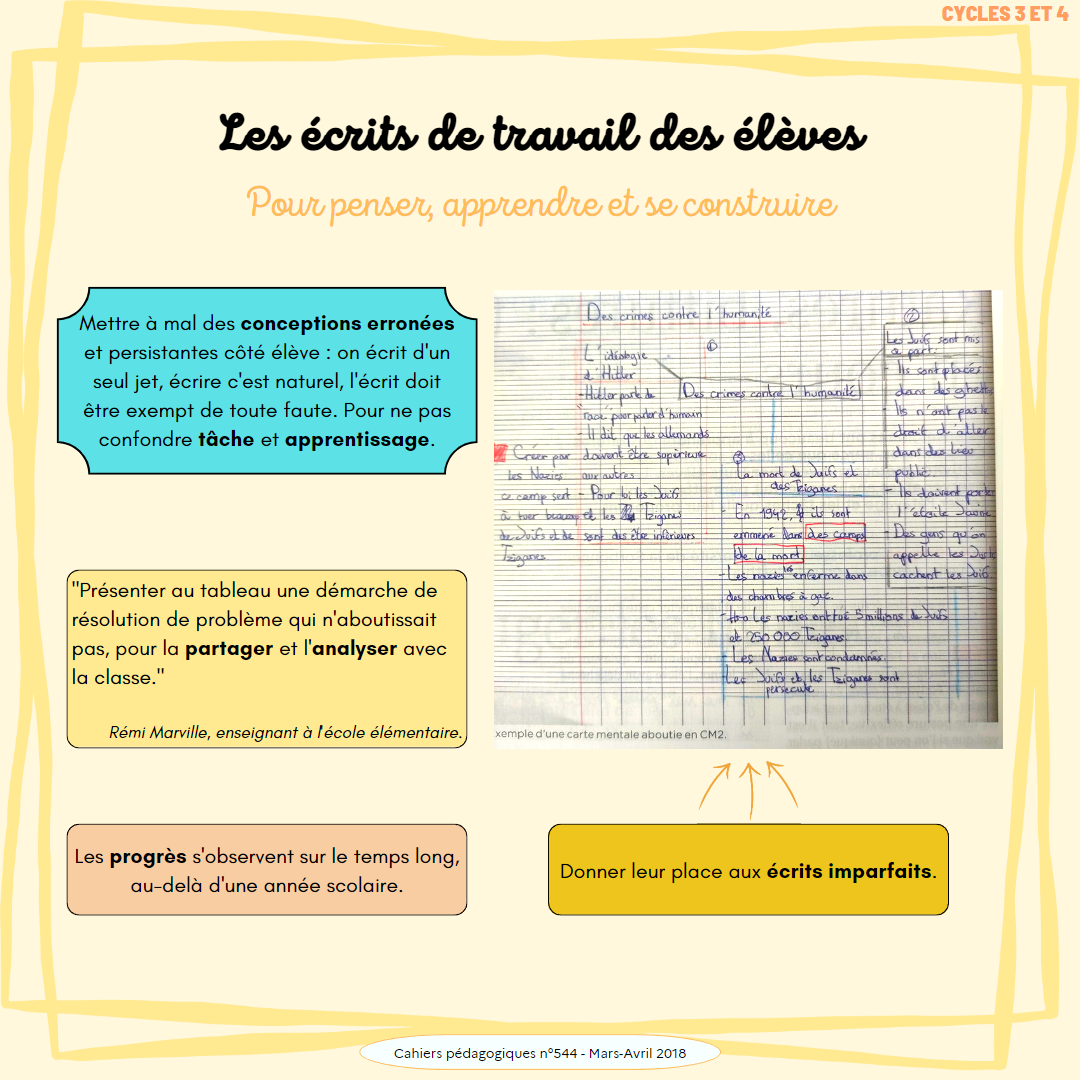 CYCLES 3 ET 4
Les écrits de travail des élèves
Pour penser, apprendre et se construire
Mettre à mal des conceptions erronées
et persistantes côté élève : on écrit d'un
seul jet, écrire c'est naturel, l'écrit doit
être exempt de toute faute. Pour ne pas
confondre tâche et apprentissage.
"Présenter au tableau une démarche de
résolution de problème qui n'aboutissait
pas, pour la partager et l'analyser avec
la classe."
Rémi Marville, enseignant à l'école élémentaire.
Les progrès s'observent sur le temps long,
au-delà d'une année scolaire.
Des crimes contre l'humanité
①
L'idéologie
d'Hitler
- Hitler parle de
"race" pour parler d'humain
- Il dit que les allemands
doivent être supérieure
aux autres
- Pour lui les Juifs
et les Tziganes
sont des être inférieurs
Créer par
les Nazies
ce camp sert
à tuer beaucoup
de Juifs et de
Tziganes
Des crimes contre l'humanité
②
Les Juifs sont mis
à part.
- Ils sont placés
dans des ghetto
- Ils n'ont pas le
droit d'aller
dans des lieu
public.
- Ils doivent porter
l'étoile Jaune
- Des gens qu'on
appelle les Justes
cachent les Juifs.
③
La mort de Juifs et
des Tziganes
- En 1942, ils sont
emmené dans des camps
de la mort
- Les nazies les enferme dans
des chambres à gaz.
- Les nazies ont tué 5 millions de Juifs
et 250 000 Tziganes.
- Les Nazies sont condamnés.
Les Juifs et les Tziganes sont
persécuté
xemple d'une carte mentale aboutie en CM2.
Donner leur place aux écrits imparfaits.
Cahiers pédagogiques n°544 - Mars-Avril 2018